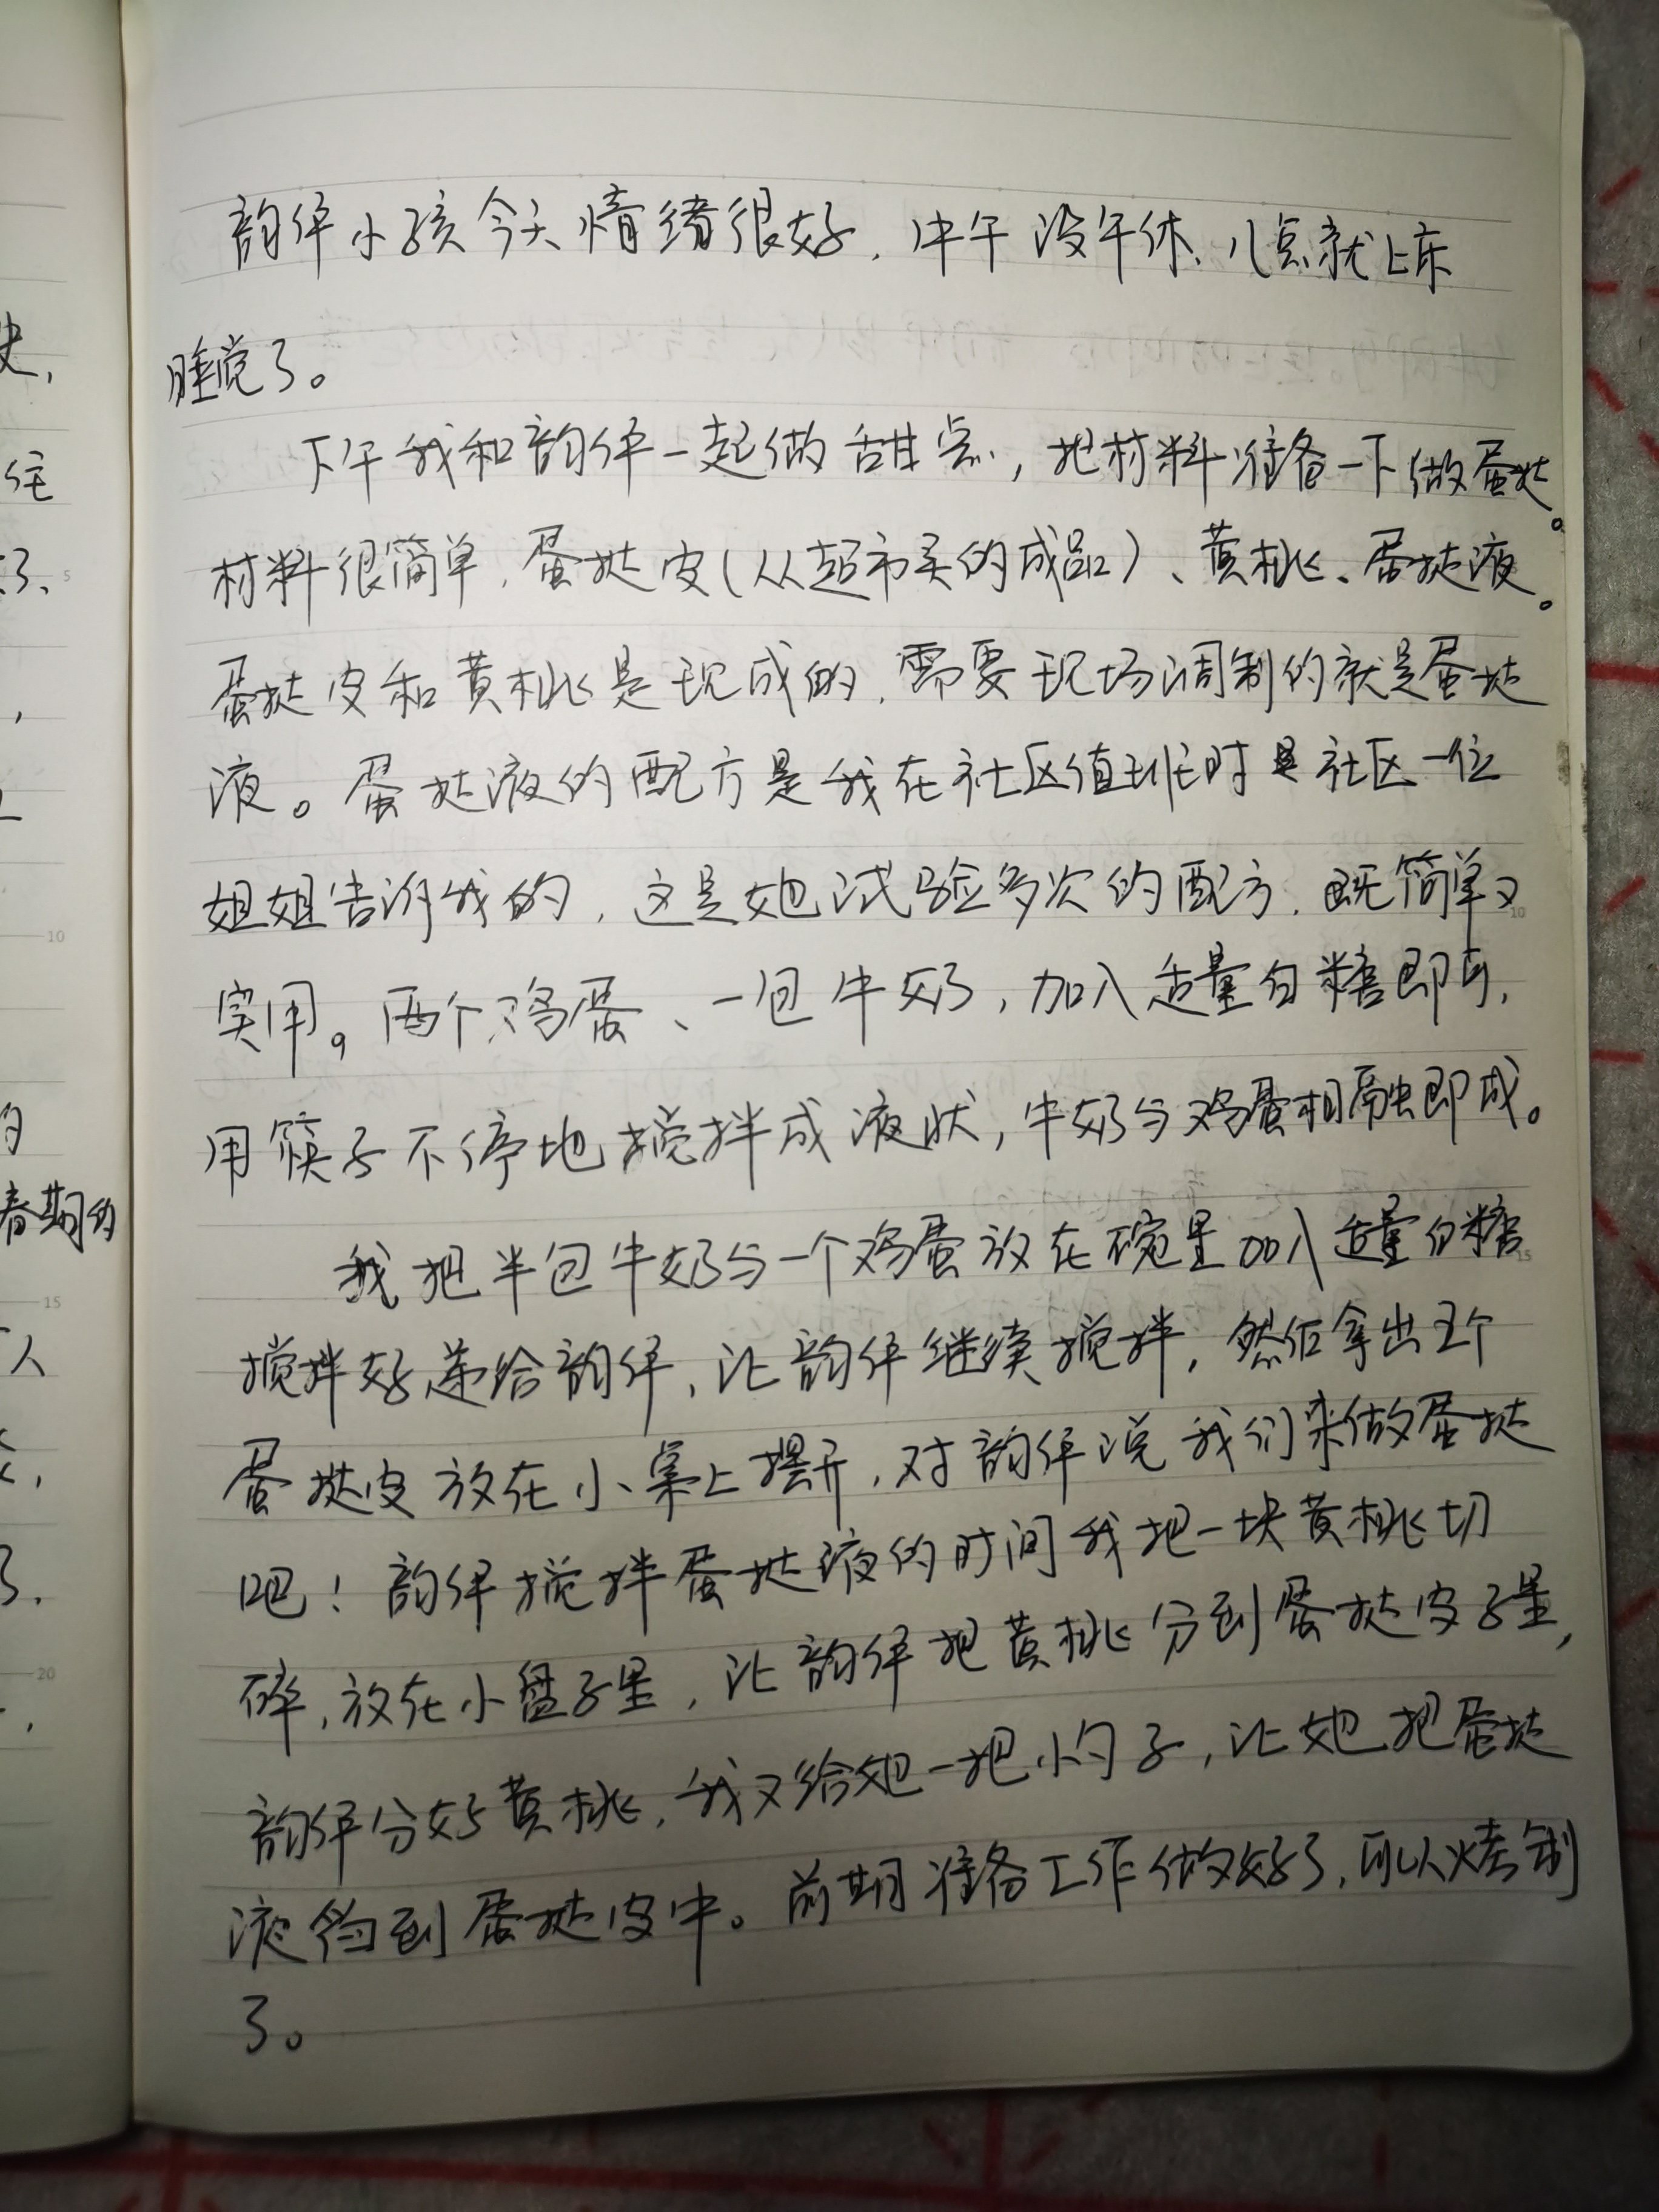 韵伴小孩今天情绪很好，中午没午休、八点就上床
睡觉了。
下午我和韵伴一起做甜点，把材料准备一下做蛋挞。
材料很简单，蛋挞皮（从超市买的成品）、黄桃、蛋挞液。
蛋挞皮和黄桃是现成的，需要现场调制的就是蛋挞
液。蛋挞液的配方是我在社区值班时是社区一位
姐姐告诉我的，这是她试验多次的配方，既简单又
实用。两个鸡蛋、一包牛奶，加入适量白糖即可，
用筷子不停地搅拌成液状，牛奶与鸡蛋相融即成。
我把半包牛奶与一个鸡蛋放在碗里加入适量白糖
搅拌好递给韵伴，让韵伴继续搅拌，然后拿出五个
蛋挞皮放在小桌上摆开，对韵伴说我们来做蛋挞
吧！韵伴搅拌蛋挞液的时间我把一块黄桃切
碎，放在小盘子里，让韵伴把黄桃分到蛋挞皮子里，
韵伴分好黄桃，我又给她一把小勺子，让她把蛋挞
液舀到蛋挞皮中。前期准备工作做好了，可以烤制
了。
史，
住
了、
，
的
春期的
人
，
了．
，
5
10
15
20
10
15